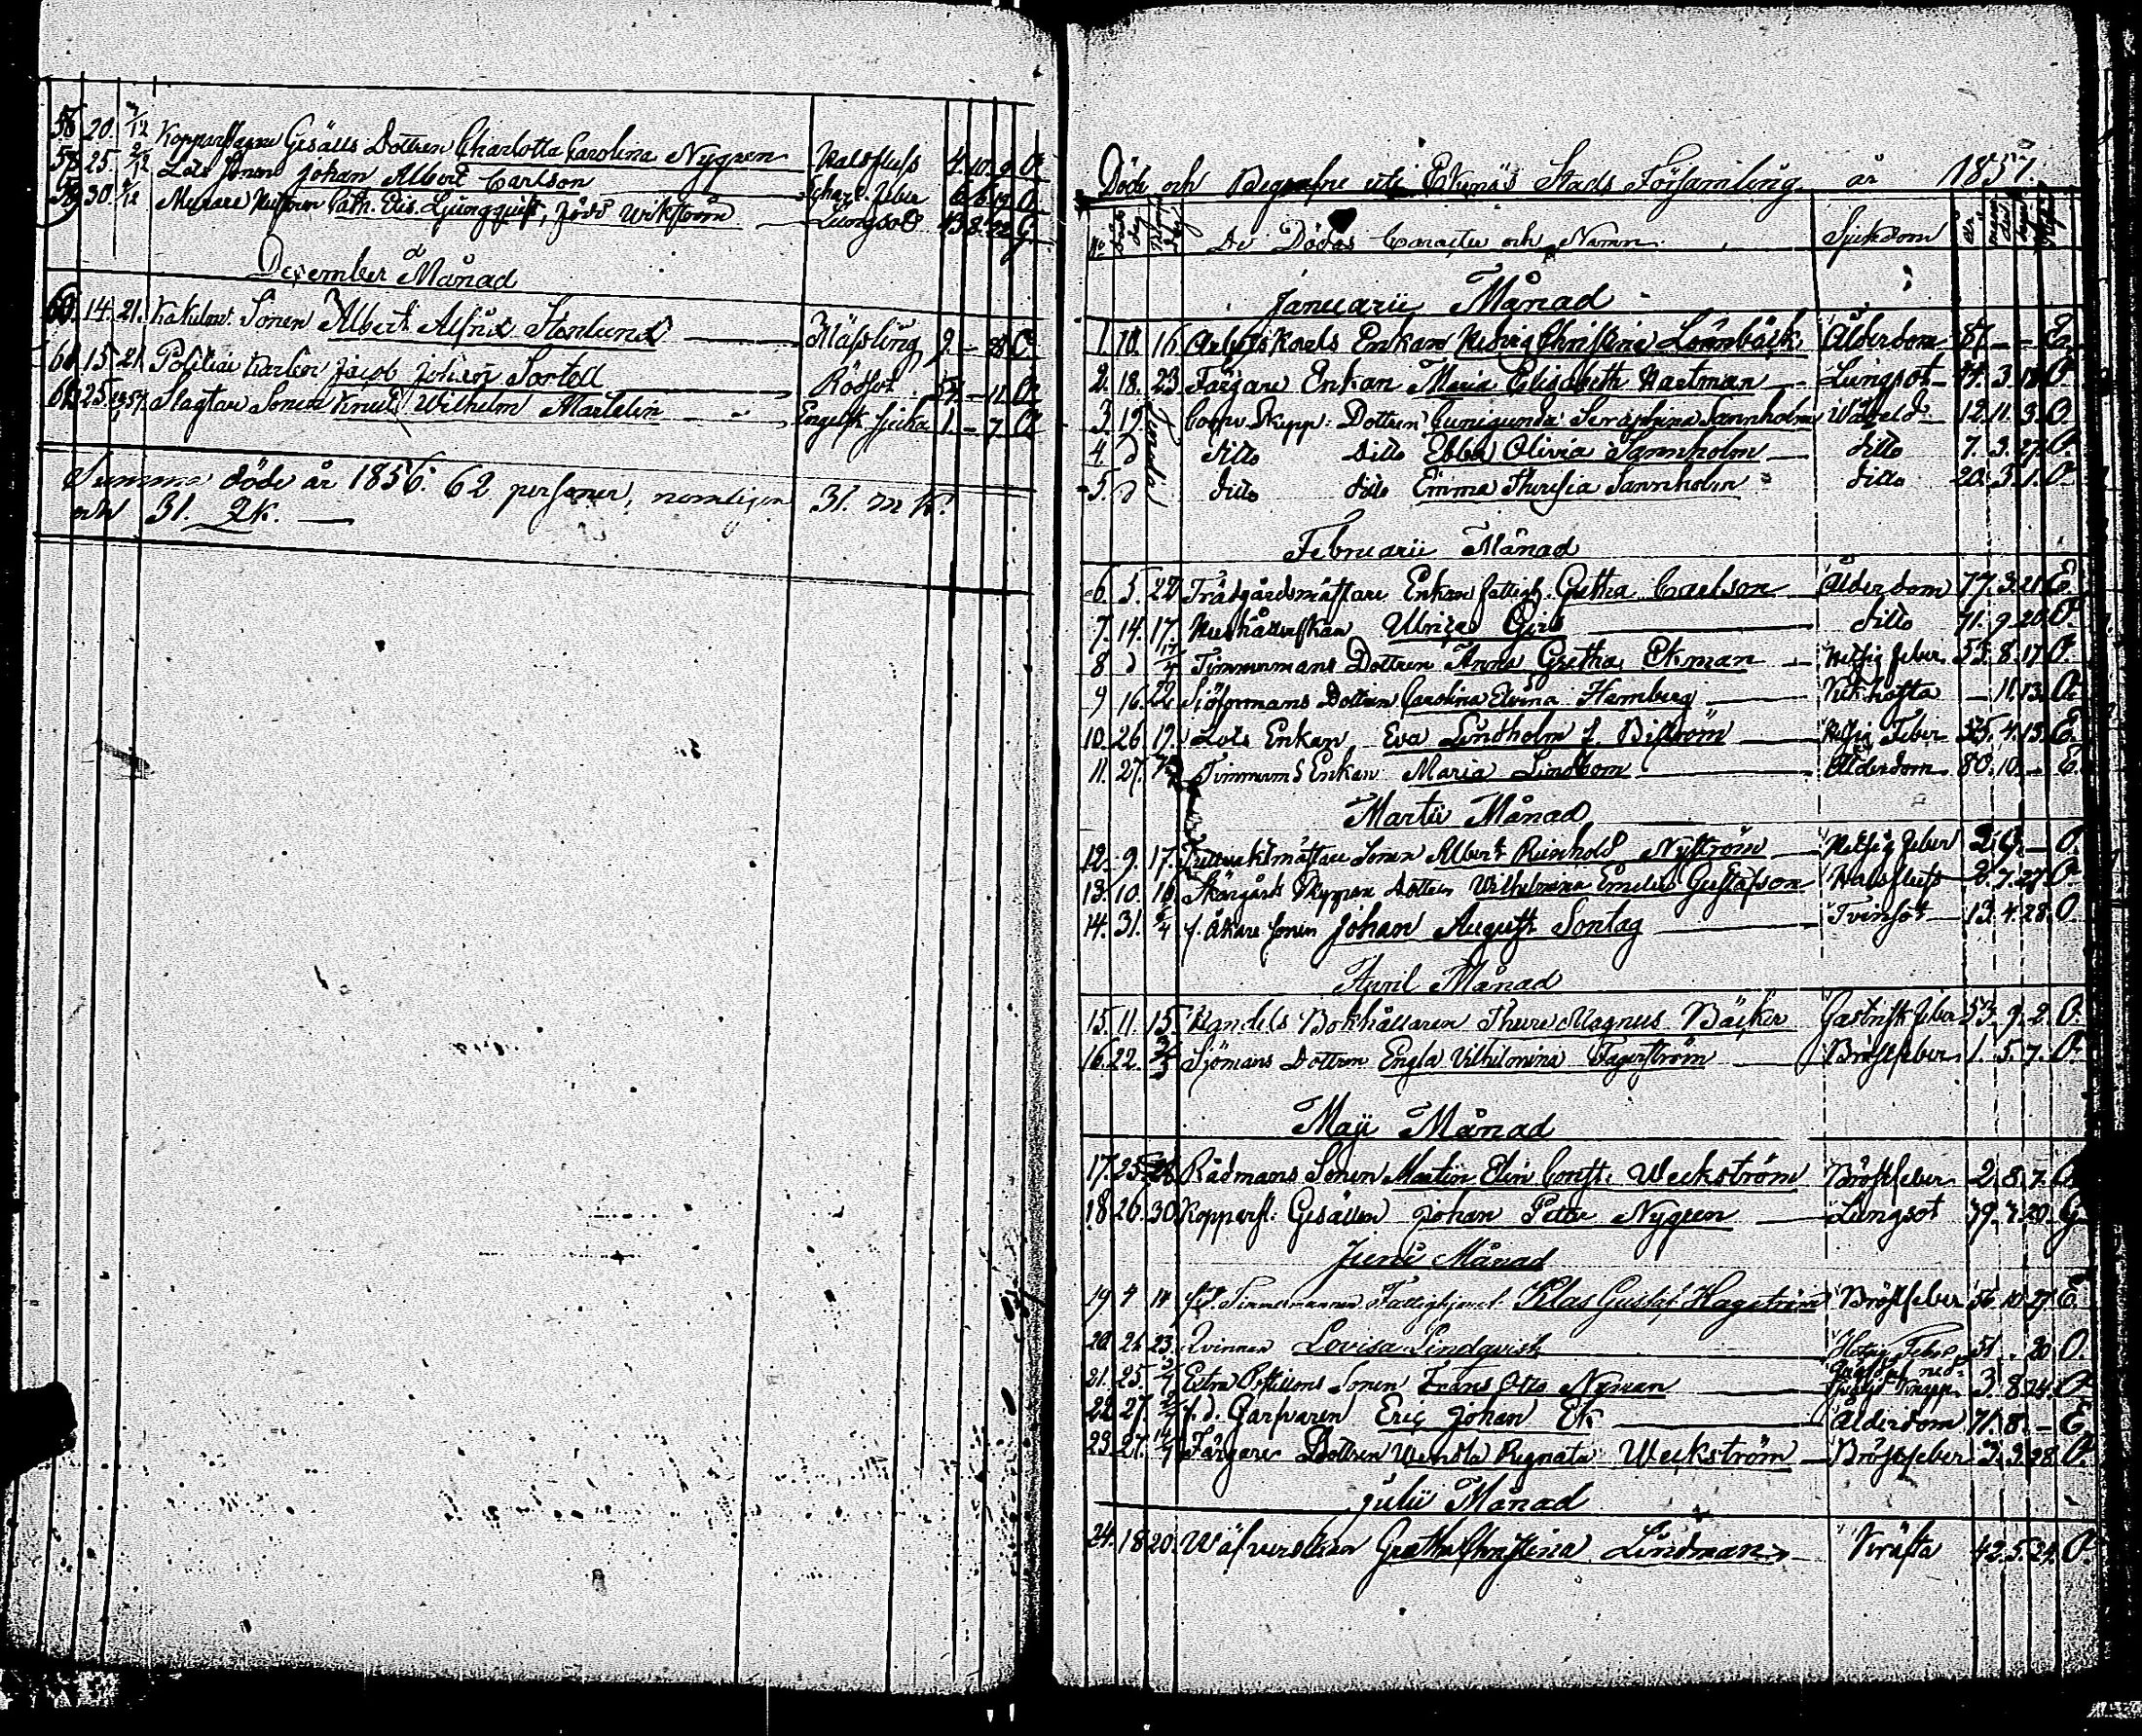 58 20. 7/12 Kopparslagare Gesälls Dottren Charlotta Carolina Nygren Halsfluss 4. 10. 9. O.
59 30. 7/12 Murare Hustrun Cath. Elis. Ljungquist, född Wikström Lungsot
December Månad
60. 14. 21. Kakelm: Sonen Albert Alfrid Stenlund Mässling 2. – 28 O.
61 15. 21. Politiae Karlen Jacob Johan Sortell Rödsot
62 25. Slagtar Sonen Knut Wilhelm Martelin Engelsk sjuka 1. – 7 O
Summa döde år 1856. 62 personer, nemligen 31. m K.
och 31. Qk.
Döde och Begrafne uti Ekenäs Stads Församling år 1857.
No De Dödas Caracter och Namn. Sjukdom
Januarii Månad
1. 10. 16. Arbetskarls Enkan Hedvig Christina Lönnbäck Ålderdom 87 – – E.
2. 18. 23. Färgare Enkan Maria Elisabeth Hartman Lungsot 77. 3. 18 O.
3. 19. Coopv. Skepp: Dottren Cunigunda Seraphina Sannholm Wådeld 12. 11. 3. O.
4. d ditto ditto Ebba Olivia Sannholm ditto 7. 3. 27. O.
5. d ditto ditto Emma Theresia Sannholm ditto 20. 3. 1. O.
Februarii Månad
6. 5. 22. Trädgårdsmästare Enkan fattigh. Gretha Carlson Ålderdom 77. 3. 21. E.
7. 14. 17. Hushållerskan Ulrica Ditto 71. 9. 20. O.
8 d Timmermans Dottren Anna Gretha Ekman Hetsig feber 55. 8. 17. O.
9 16. 22 Sjöformans Dottren Carolina Elvina Hamberg Kikhosta – 11. 13. O.
10. 26. 19. Lots Enkan Eva Lindholm f. Biström Hetsig Feber 35. 4. 13. E.
11. 27. Timmerm: Enkan Maria Lindbom Ålderdom 80. 10. – E.
Martii Månad
12. 9. 17. Sonen Albert Reinhold Nyström Hetsig feber 2. 9. – O.
13. 10. 16. Skärgårds Skeppare Dottren Wilhelmina Emelie Gustafson Halsfluss 2. 7. 27 O.
14. 31. f. Åkare sonen Johan August Sontag Tvinsot 13. 4. 28. O.
April Månad
15. 11. 15. Handels Bokhållaren Thure Magnus Bäcker Gastrisk feber 53. 9. 2. O.
16. 22. Sjömans Dottren Engla Vilhelmina Fagerström Bröstfeber 1. 5. 7. O.
Maji Månad
17. 25. 28 Rådmans Sonen Martin Elin Const. Weckström Bröstfeber 2. 8. 7. O
18 26. 30. Kopparsl: Gesällen Johan Petter Nygren Lungsot 79. 7. 20. G
Junii Månad
19 4 11 f.d. Timmermannen Fattighjonet Klas Gustaf Hagström Bröstfeber 56. 10. 27. E.
20. 21. 23. Qvinnan Lovisa Lindqvist Hetsig Feber 51 . 20 O.
21. 25. Extra Postillons Sonen Frans Otto Nyman 3. 8. 24. O.
22. 27. f.d. Garfvaren Eric Johan Ek Ålderdom 71. 8. – E
23. 27. 14/7 Färgare Dottren Wendla Regnata Weckström Bröstfeber 3. 3. 28. O.
Julii Månad
24. 18 20. Wäfverskan Gretha Christina Lindman Kräfta 42. 5. 24. O.